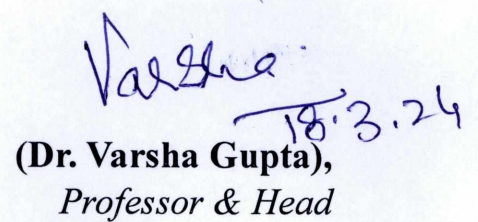 Varsha
18.3.24
(Dr. Varsha Gupta),
Professor & Head